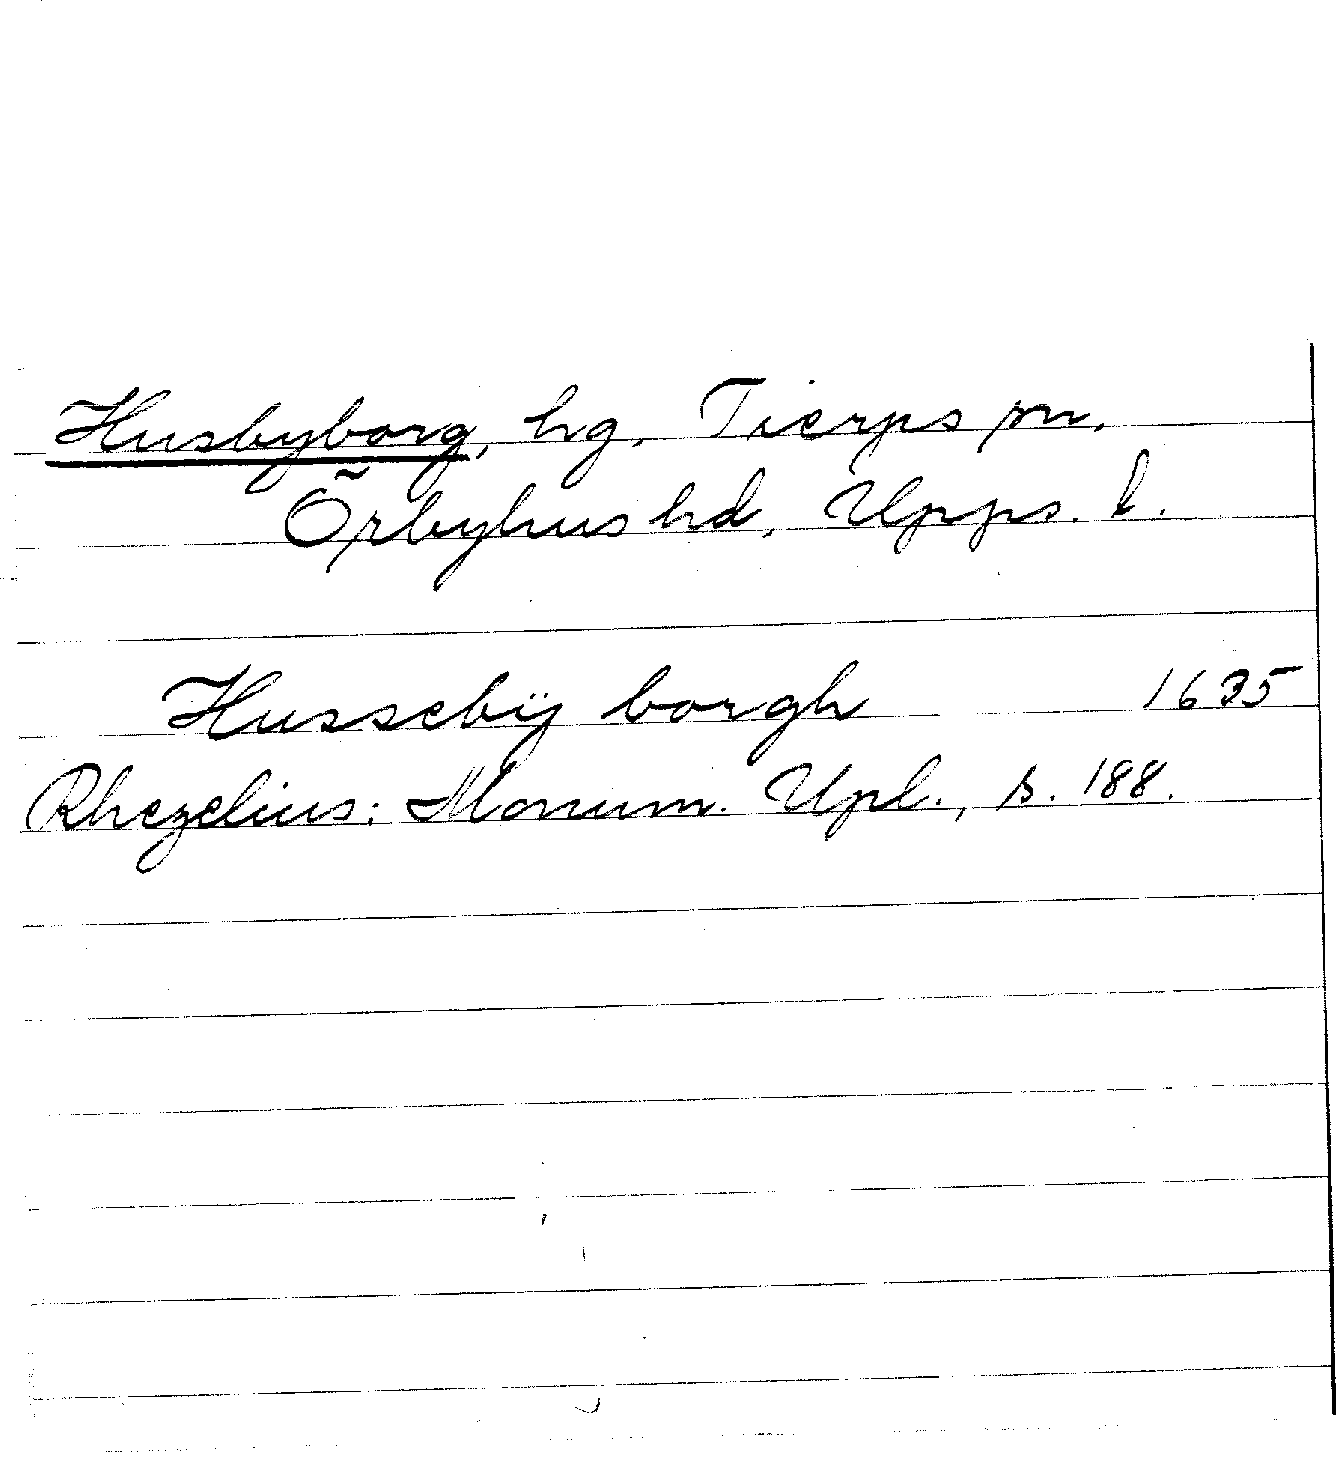 Husbyborg, hg, Tierps sn,
Örbyhus hd, Upps. l.
Hussebÿ borgh 1635
Rhezelius: Monum. Upl., s. 188.